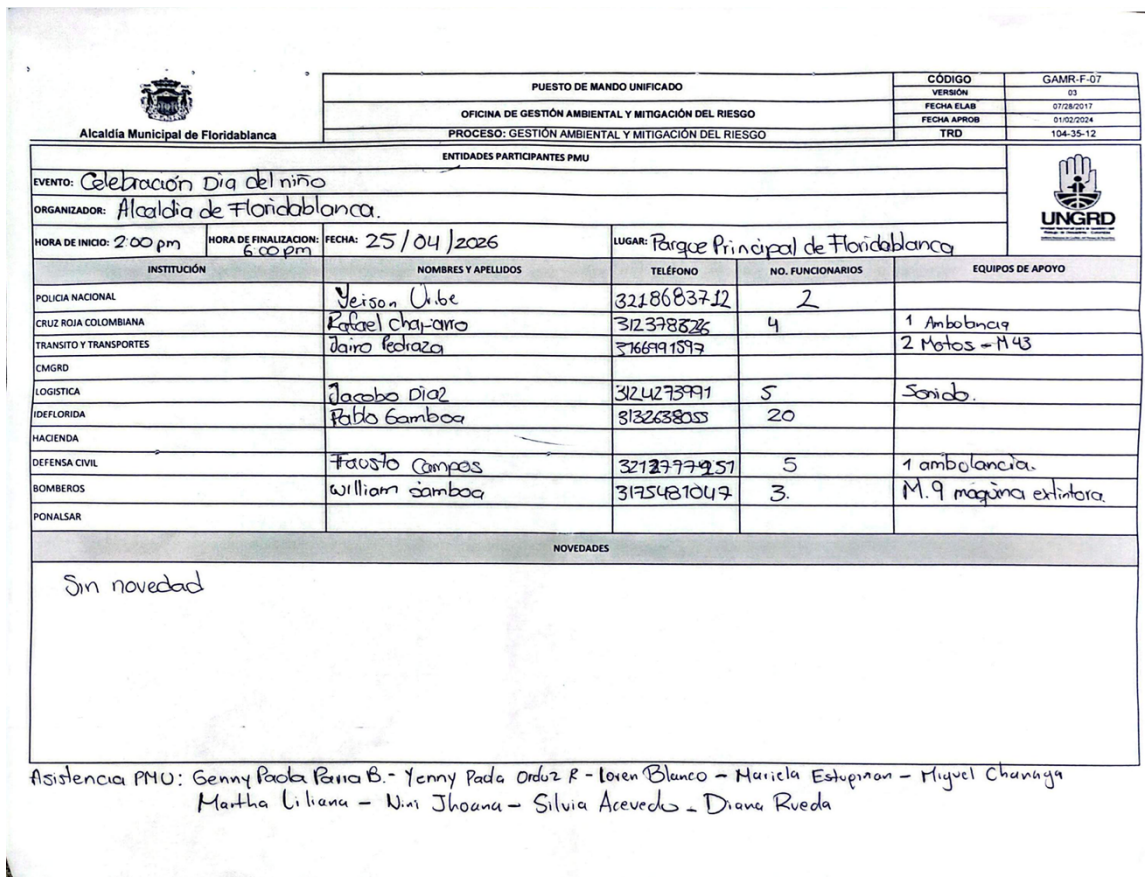 Alcaldía Municipal de Floridablanca
PUESTO DE MANDO UNIFICADO
OFICINA DE GESTIÓN AMBIENTAL Y MITIGACIÓN DEL RIESGO
PROCESO: GESTIÓN AMBIENTAL Y MITIGACIÓN DEL RIESGO
CÓDIGO GAMR-F-07
VERSIÓN 03
FECHA ELAB 07/28/2017
FECHA APROB 01/02/2024
TRD 104-35-12
ENTIDADES PARTICIPANTES PMU
UNGRD
EVENTO: Celebración Dia del niño
ORGANIZADOR: Alcaldia de Floridablanca.
HORA DE INICIO: 2:00 pm HORA DE FINALIZACION: 6:00 pm FECHA: 25/04/2026 LUGAR: Parque Principal de Floridablanca
INSTITUCIÓN NOMBRES Y APELLIDOS TELÉFONO NO. FUNCIONARIOS EQUIPOS DE APOYO
POLICIA NACIONAL Yeison Uribe 3218683712 2
CRUZ ROJA COLOMBIANA Rafael Chaparro 4 1 Ambolancia
TRANSITO Y TRANSPORTES Jairo Pedraza 3166991597 2 Motos - M43
CMGRD
LOGISTICA Jacobo Diaz 3124273991 5 Sonido.
IDEFLORIDA Pablo Gamboa 3132638055 20
HACIENDA
DEFENSA CIVIL Fausto Campos 5 1 ambolancia.
BOMBEROS William Gamboa 3175481047 3. M.9 máquina extintora.
PONALSAR
NOVEDADES
Sin novedad
Asistencia PMU: Genny Paola B. - Yenny Paola Orduz R - Loren Blanco - Mariela Estupiñan - Miguel
Martha Liliana - Nini Jhoana - Silvia Acevedo - Diana Rueda